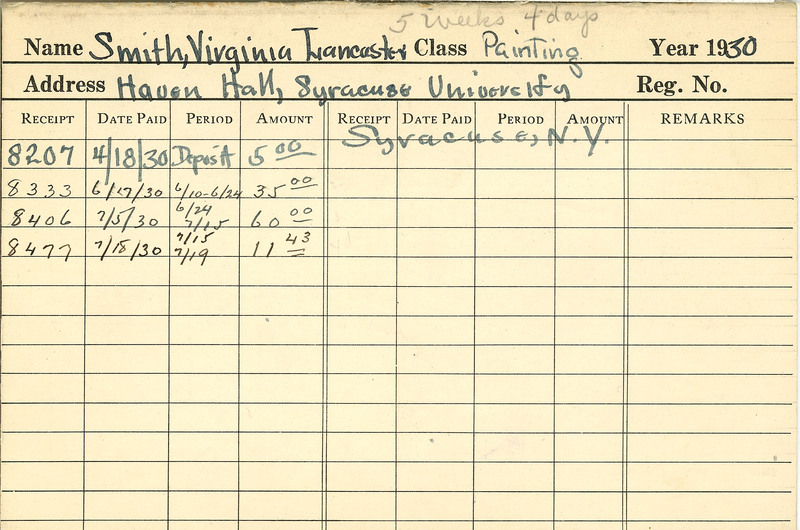 5 weeks 4 days
Name Smith, Virginia Lancaster Class Painting Year 1930
Address Haven Hall, Syracuse University Reg. No.
RECEIPT DATE PAID PERIOD AMOUNT RECEIPT DATE PAID PERIOD AMOUNT REMARKS
Syracuse, N.Y.
8207 4/18/30 Deposit 5 00
8333 6/17/30 6/10-6/24 35 00
8406 7/5/30 6/24 7/15 60 00
8477 7/18/30 7/15 7/19 11 43